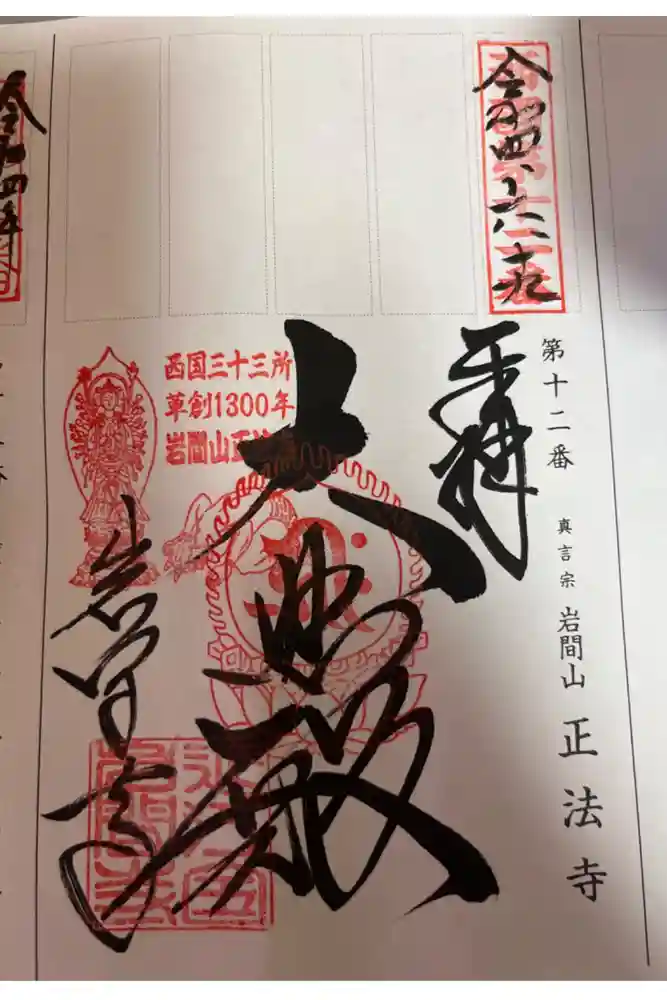 令和四、六、十九
奉拝
第十二番
真言宗 岩間山 正法寺
大悲殿
西国三十三所
草創1300年
岩間山正法寺
岩间寺
令和四年